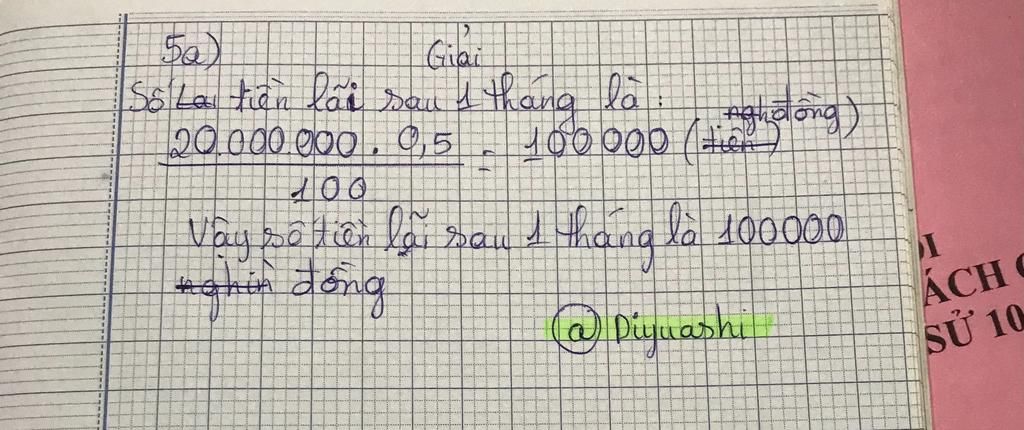 5a) Giải
Số Lai tiền lãi sau 1 tháng là:
20.000.000 . 0,5 = 100000 (tiền) nghđồng)
100
Vậy số tiền lãi sau 1 tháng là 100000
nghìn đồng
@ Diyuashi
ÁCH
SỬ 10